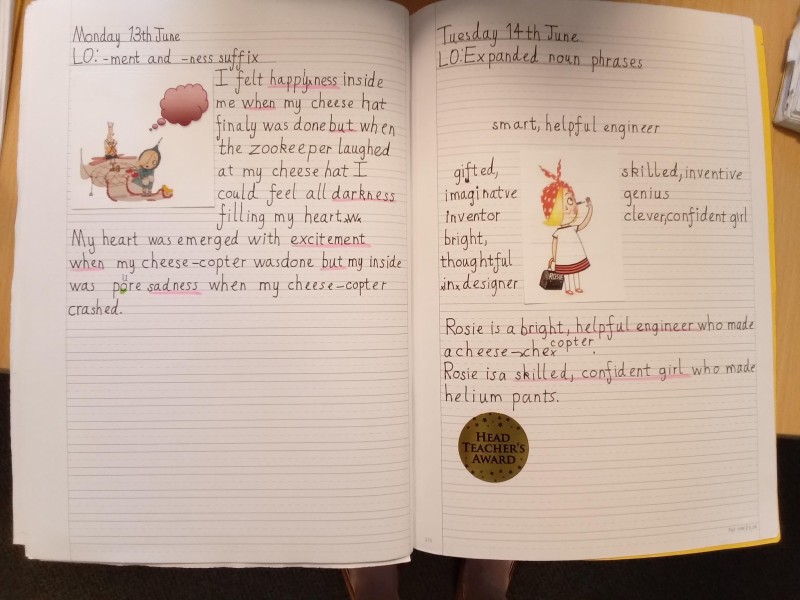 Monday 13th June
LO: -ment and -ness suffix
I felt happyness inside
me when my cheese hat
finaly was done but when
the zookeeper laughed
at my cheese hat I
could feel all darkness
filling my heart.
My heart was emerged with excitement
when my cheese-copter was done but my inside
was pure sadness when my cheese-copter
crashed.
Tuesday 14th June
LO: Expanded noun phrases
smart, helpful engineer
gifted,
imaginatve
inventor
bright,
thoughtful
designer
skilled, inventive
genius
clever, confident girl
ROSIE
Rosie is a bright, helpful engineer who made
a cheese-copter.
Rosie is a skilled, confident girl who made
helium pants.
HEAD
TEACHER'S
AWARD